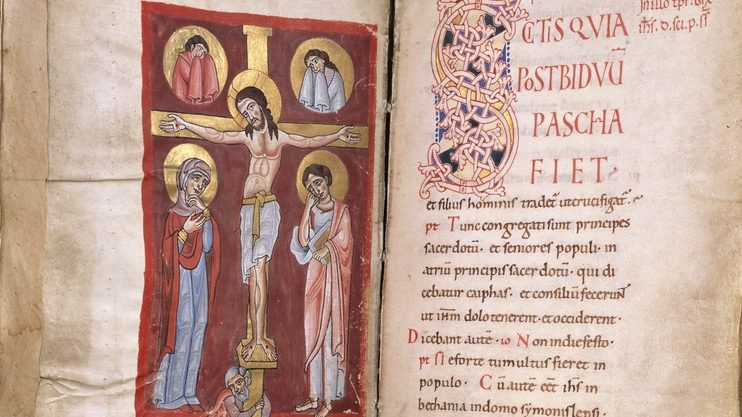 In illo tpr. dix
ihs. d. sci. p. ss
SCITIS QVIA
POST BIDVŪ
PASCHA
FIET·
et filius hominis tradet᷑ ut crucifigat᷑·
pt Tunc congregati sunt principes
sacerdotū· et seniores populi· in
atriū principis sacerdotū· qui di
cebatur caiphas· et consiliū fecerunt
ut ihm̄ dolo tenerent· et occiderent·
Dicebant autē· io Non in die festo·
pt si e forte tumultus fieret in
populo· Cū autē eēt ihs in
bethania in domo symonis lepsi·